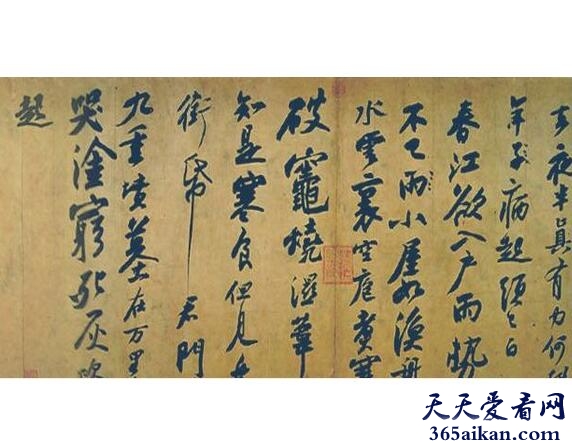 去夜半真有力何
年子病起須已白
春江欲入戶雨勢
不已雨小屋如漁舟
水雲裏空庖煮寒
破竈燒濕葦
知是寒食但見
銜帋君門
九重墳墓在万里
哭塗窮死灰吹
起
天天爱看网
365aikan.com